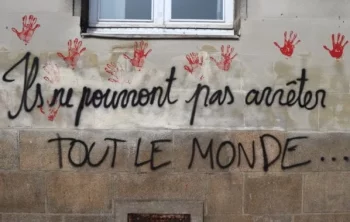 Ils ne pourront pas arrêter
TOUT LE MONDE...